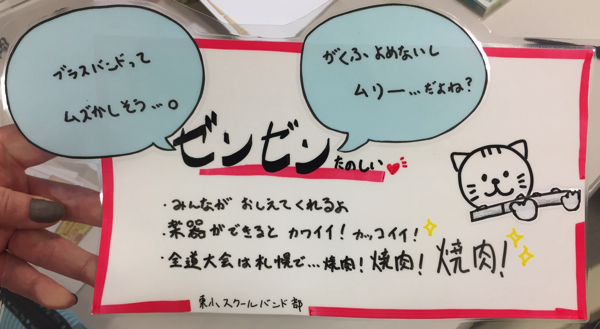 ブラスバンドって
ムズかしそう…。
がくふ よめないし
ムリー…だよね?
ゼンゼン
たのしい
・みんなが おしえてくれるよ
・楽器ができると カワイイ! カッコイイ!
・全道大会は札幌で…焼肉! 焼肉! 焼肉!
東小スクールバンド部